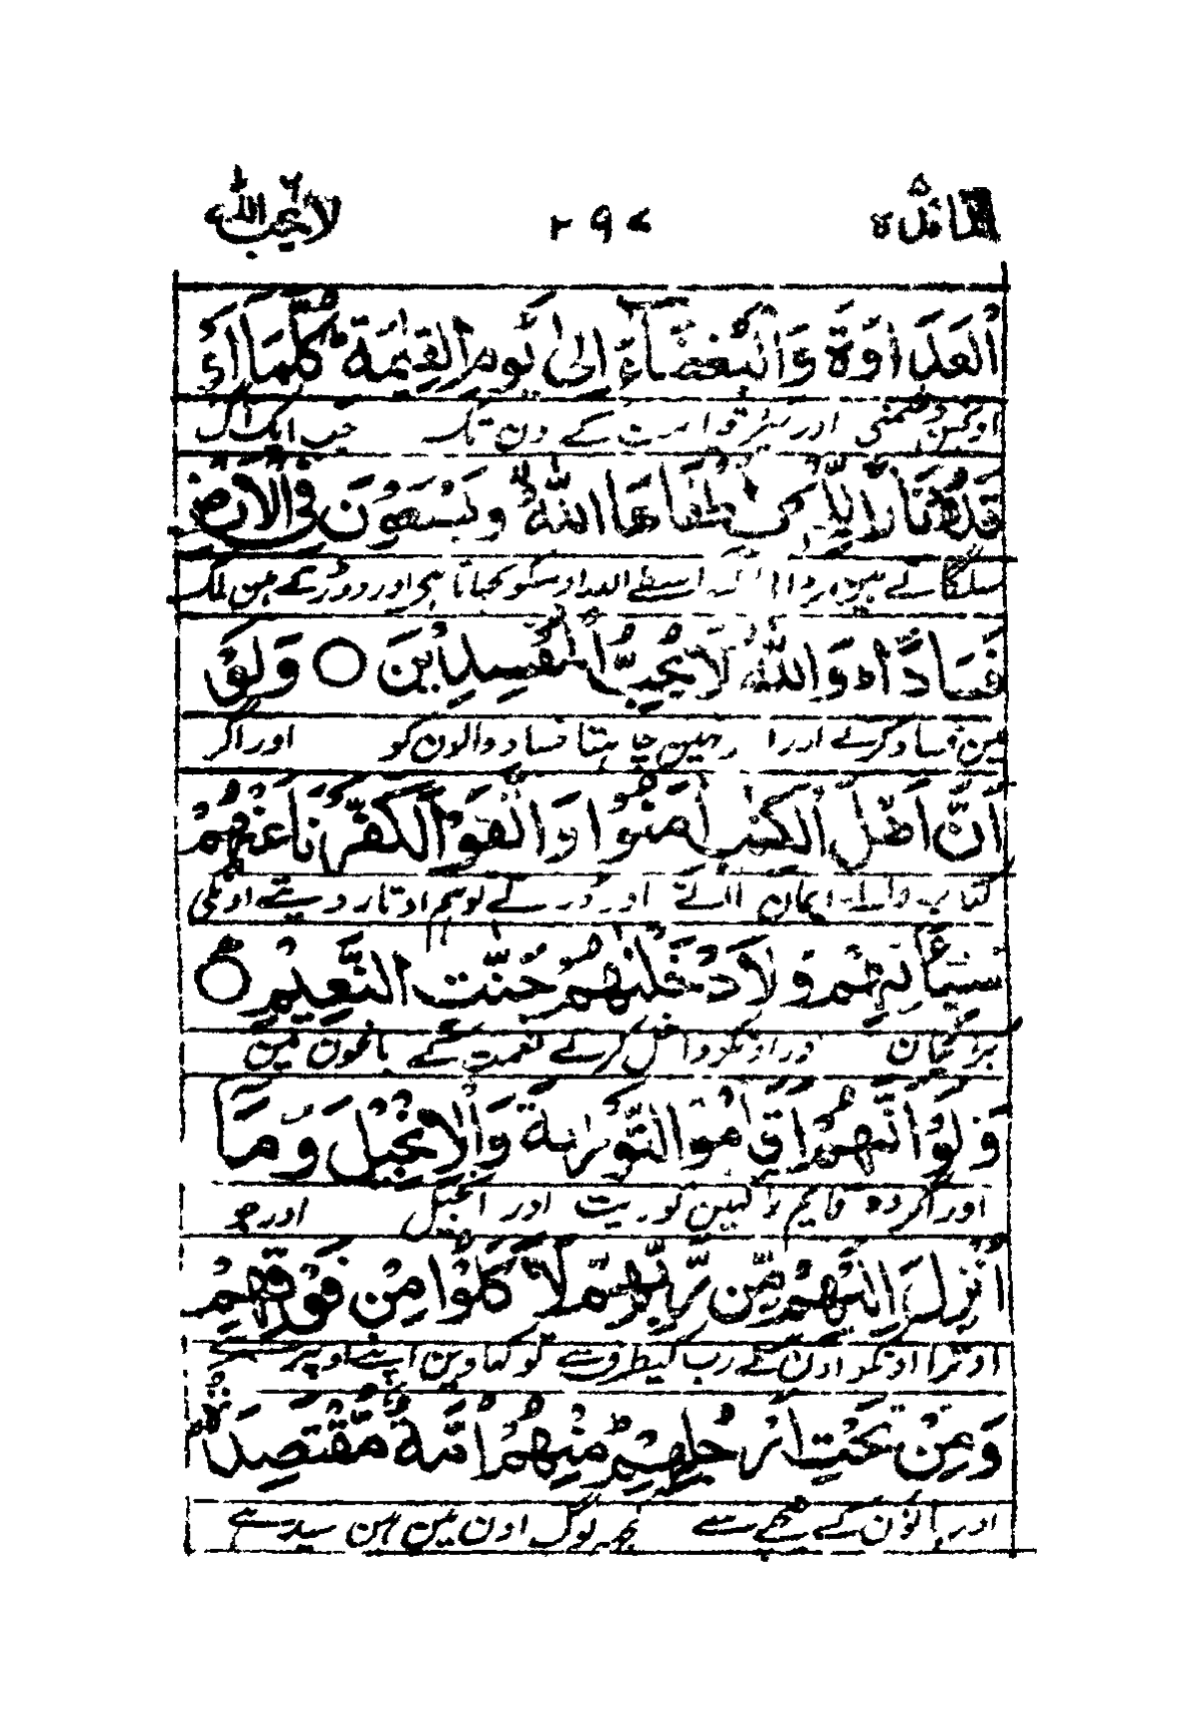 المائدة ٥ ٢٩٧ لا يحب الله ٦
الْعَدَاوَةَ وَالْبَغْضَآءَ اِلٰى يَوْمِ الْقِيٰمَةِ ؕ كُلَّمَآ اَوْ
اور دشمنی اور بیر قیامت کے دن تک جب ایک آگ
قَدُوْا نَارًا لِّلْحَرْبِ اَطْفَاَهَا اللّٰهُ ۙ وَيَسْعَوْنَ فِى الْاَرْضِ
سلگاتے ہین اللہ اوسکو بجھاتا ہی اور دوڑتے ہین ملک
فَسَادًا ؕ وَاللّٰهُ لَا يُحِبُّ الْمُفْسِدِيْنَ ○ وَلَوْ
مین فساد کرتے اور نہین چاہتا فساد والون کو اور اگر
اَنَّ اَهْلَ الْكِتٰبِ اٰمَنُوْا وَاتَّقَوْا لَكَفَّرْنَا عَنْهُمْ
کتاب والے ایمان لاتے اور ڈرتے تو ہم اوتار دیتے اونکی
سَيِّاٰتِهِمْ وَلَاَدْخَلْنٰهُمْ جَنّٰتِ النَّعِيْمِ ○
برائیان اور اونکو داخل کرتے نعمت کے باغون مین
وَلَوْ اَنَّهُمْ اَقَامُوا التَّوْرٰىةَ وَالْاِنْجِيْلَ وَمَآ
اور اگر وہ قایم رکہین توریت اور انجیل اور جو
اُنْزِلَ اِلَيْهِمْ مِّنْ رَّبِّهِمْ لَاَكَلُوْا مِنْ فَوْقِهِمْ
اوترا اونکو اون کے رب کیطرف سے تو کہاوین اپنے اوپر سے
وَمِنْ تَحْتِ اَرْجُلِهِمْ ؕ مِنْهُمْ اُمَّةٌ مُّقْتَصِدَةٌ
اور پانؤن کے نیچے سے کچھ لوگ اون مین ہین سیدھے